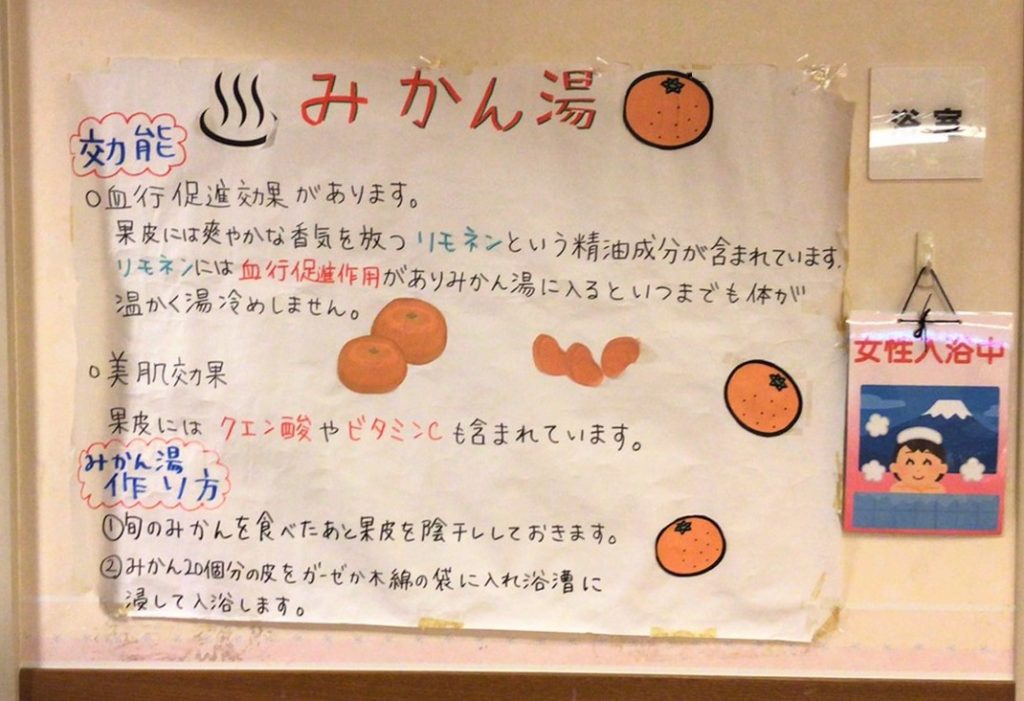 みかん湯
効能
○血行促進効果があります。
果皮には爽やかな香気を放つリモネンという精油成分が含まれています.
リモネンには血行促進作用がありみかん湯に入るといつまでも体が
温かく湯冷めしません。
○美肌効果
果皮にはクエン酸やビタミンCも含まれています。
みかん湯
作り方
①旬のみかんを食べたあと果皮を陰干ししておきます。
②みかん20個分の皮をガーゼか木綿の袋に入れ浴漕に
浸して入浴します。
浴室
女性入浴中